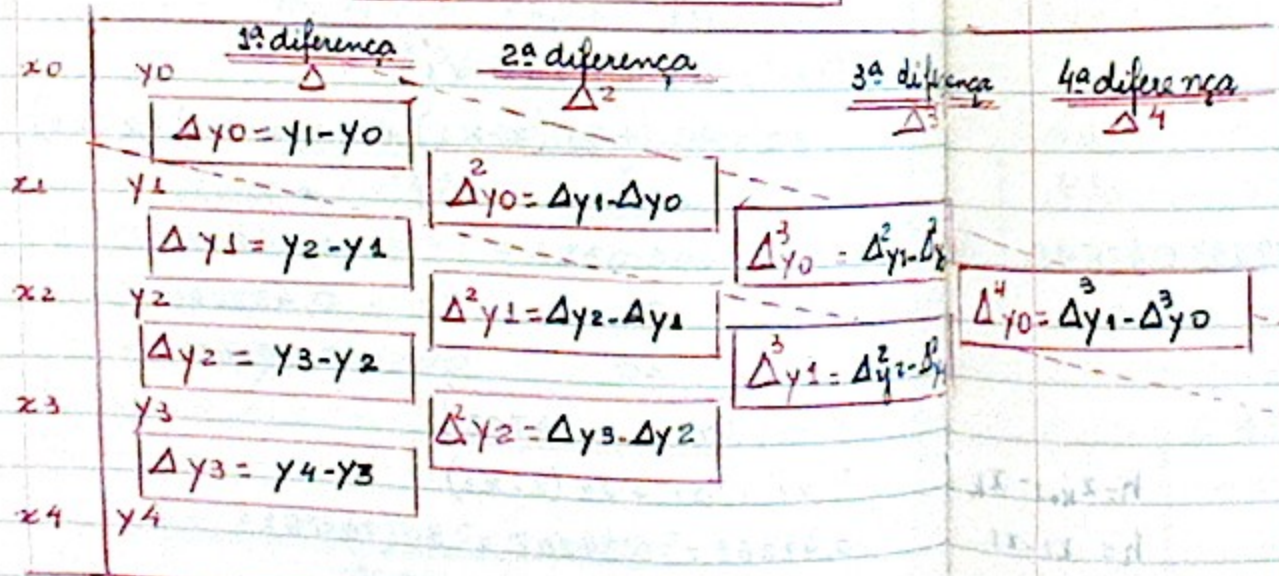 1ª diferença 2ª diferença 3ª diferença 4ª diferença
x0 y0 Δ Δ² Δ³ Δ⁴
Δy0 = y1-y0
x1 y1 Δ²y0 = Δy1-Δy0
Δy1 = y2-y1 Δ³y0 = Δ²y1-Δ²y
x2 y2 Δ²y1 = Δy2-Δy1 Δ⁴y0 = Δ³y1-Δ³y0
Δy2 = y3-y2 Δ³y1 = Δ²y2-Δ²y1
x3 y3 Δ²y2 = Δy3-Δy2
Δy3 = y4-y3
x4 y4